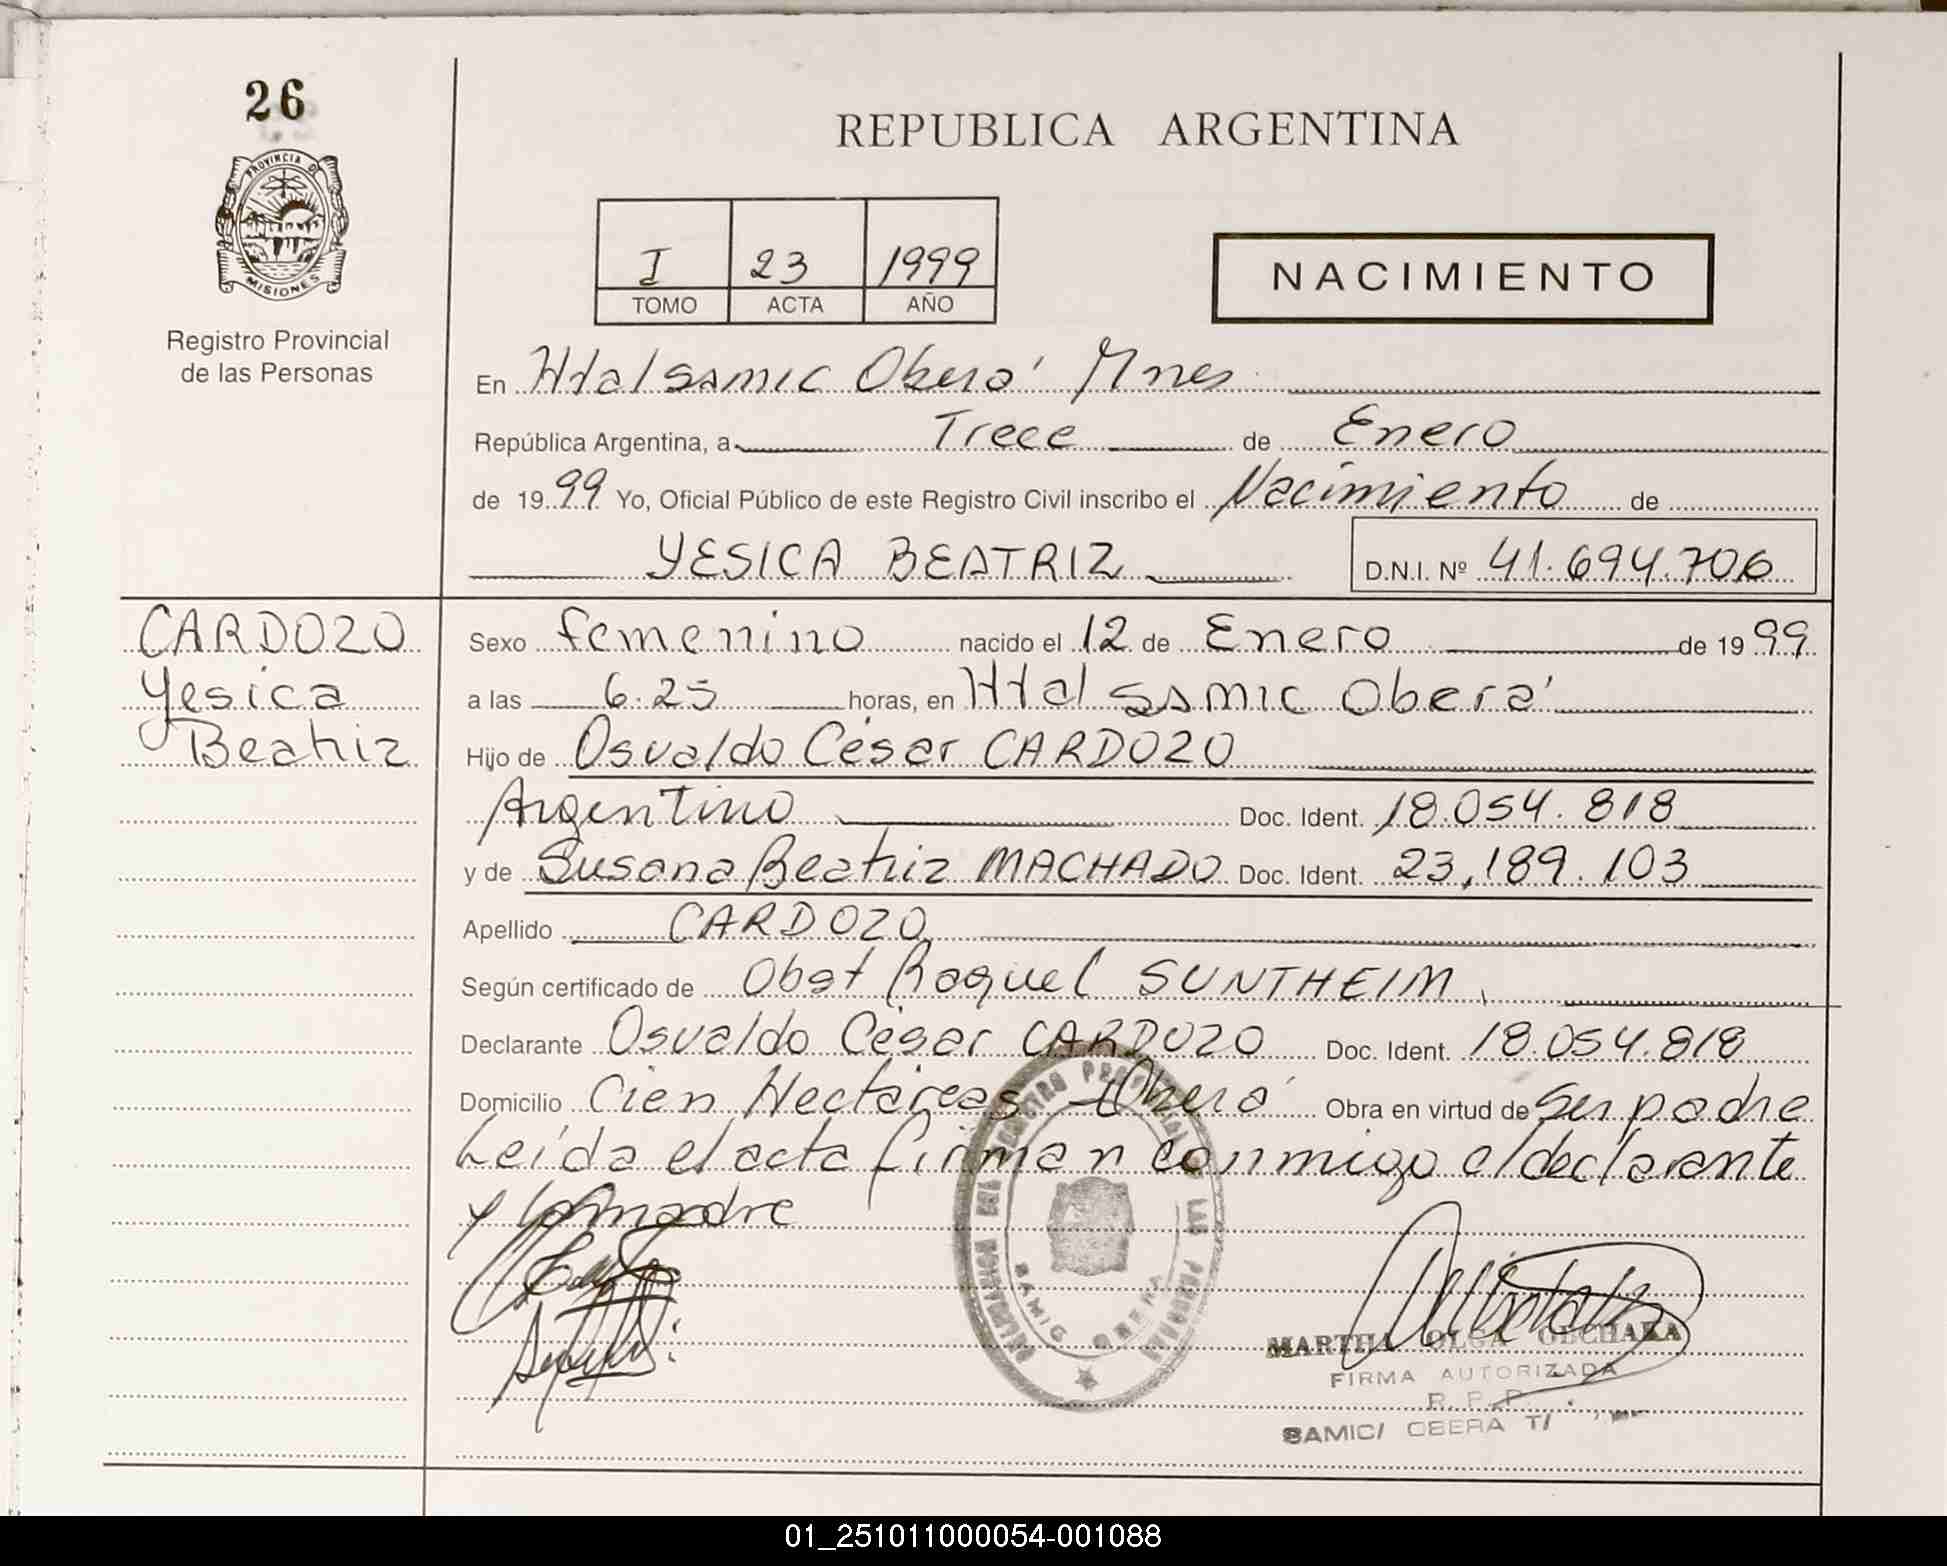 26
PROVINCIA D
MISIONES
Registro Provincial
de las Personas
REPUBLICA ARGENTINA
I 23 1999
TOMO ACTA AÑO
NACIMIENTO
En Htal samic Oberá Mnes
República Argentina, a Trece de Enero
de 1999 Yo, Oficial Público de este Registro Civil inscribo el Nacimiento de
YESICA BEATRIZ D.N.I. Nº 41.694.706
CARDOZO
Yesica
Beatriz
Sexo femenino nacido el 12 de Enero de 1999
a las 6.25 horas, en Htal samic Oberá
Hijo de Osvaldo César CARDOZO
Argentino Doc. Ident. 18.054.818
y de Susana Beatriz MACHADO Doc. Ident. 23.189.103
Apellido CARDOZO
Según certificado de Obst Raquel SUNTHEIM
Declarante Osvaldo César CARDOZO Doc. Ident. 18.054.818
Domicilio Cien Hectáreas - Oberá Obra en virtud de ser padre
Leída el acta firman conmigo el declarante
y la madre
SAMIC OBERA
MARTHA OLGA OECHAKA
FIRMA AUTORIZADA
R. P. P.
SAMIC/ OBERA T/
01_251011000054-001088